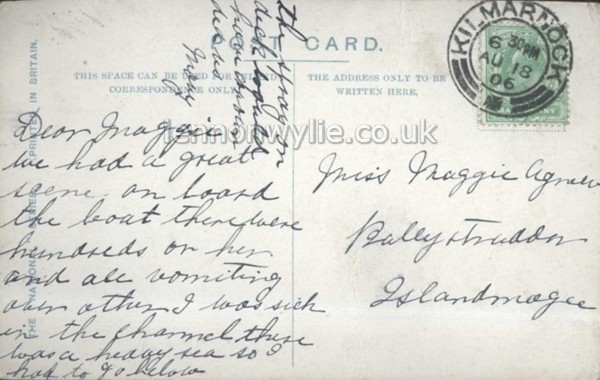 POST CARD.
THIS SPACE CAN BE USED FOR INLAND
CORRESPONDENCE ONLY
THE ADDRESS ONLY TO BE
WRITTEN HERE.
KILMARNOCK
6 30PM
AU 18
06
lennonwylie.co.uk
PRINTED IN BRITAIN.
THE NATIONAL SERIES
Dear Maggie
we had a great
scene on board
the boat there were
hundreds on her
and all vomiting
over other I was sick
in the channel there
was a heavy sea so I
had to go below
the
deck
down
Miss Maggie Agnew
Ballystrudder
Islandmagee